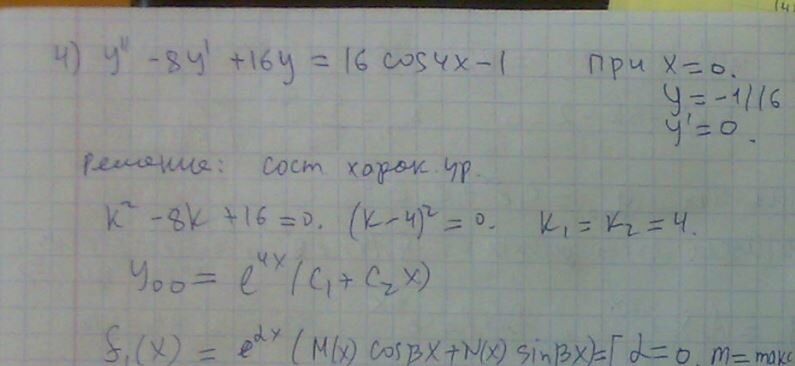 4) y'' - 8y' + 16y = 16 cos4x - 1 при x = 0.
y = -1/16
y' = 0.
Решение: сост харак. ур.
k² - 8k + 16 = 0. (k - 4)² = 0. k₁ = k₂ = 4.
y₀₀ = e⁴ˣ (C₁ + C₂x)
f₁(x) = e^αx (M(x) cosβx + N(x) sinβx) = [ α = 0, m = макс